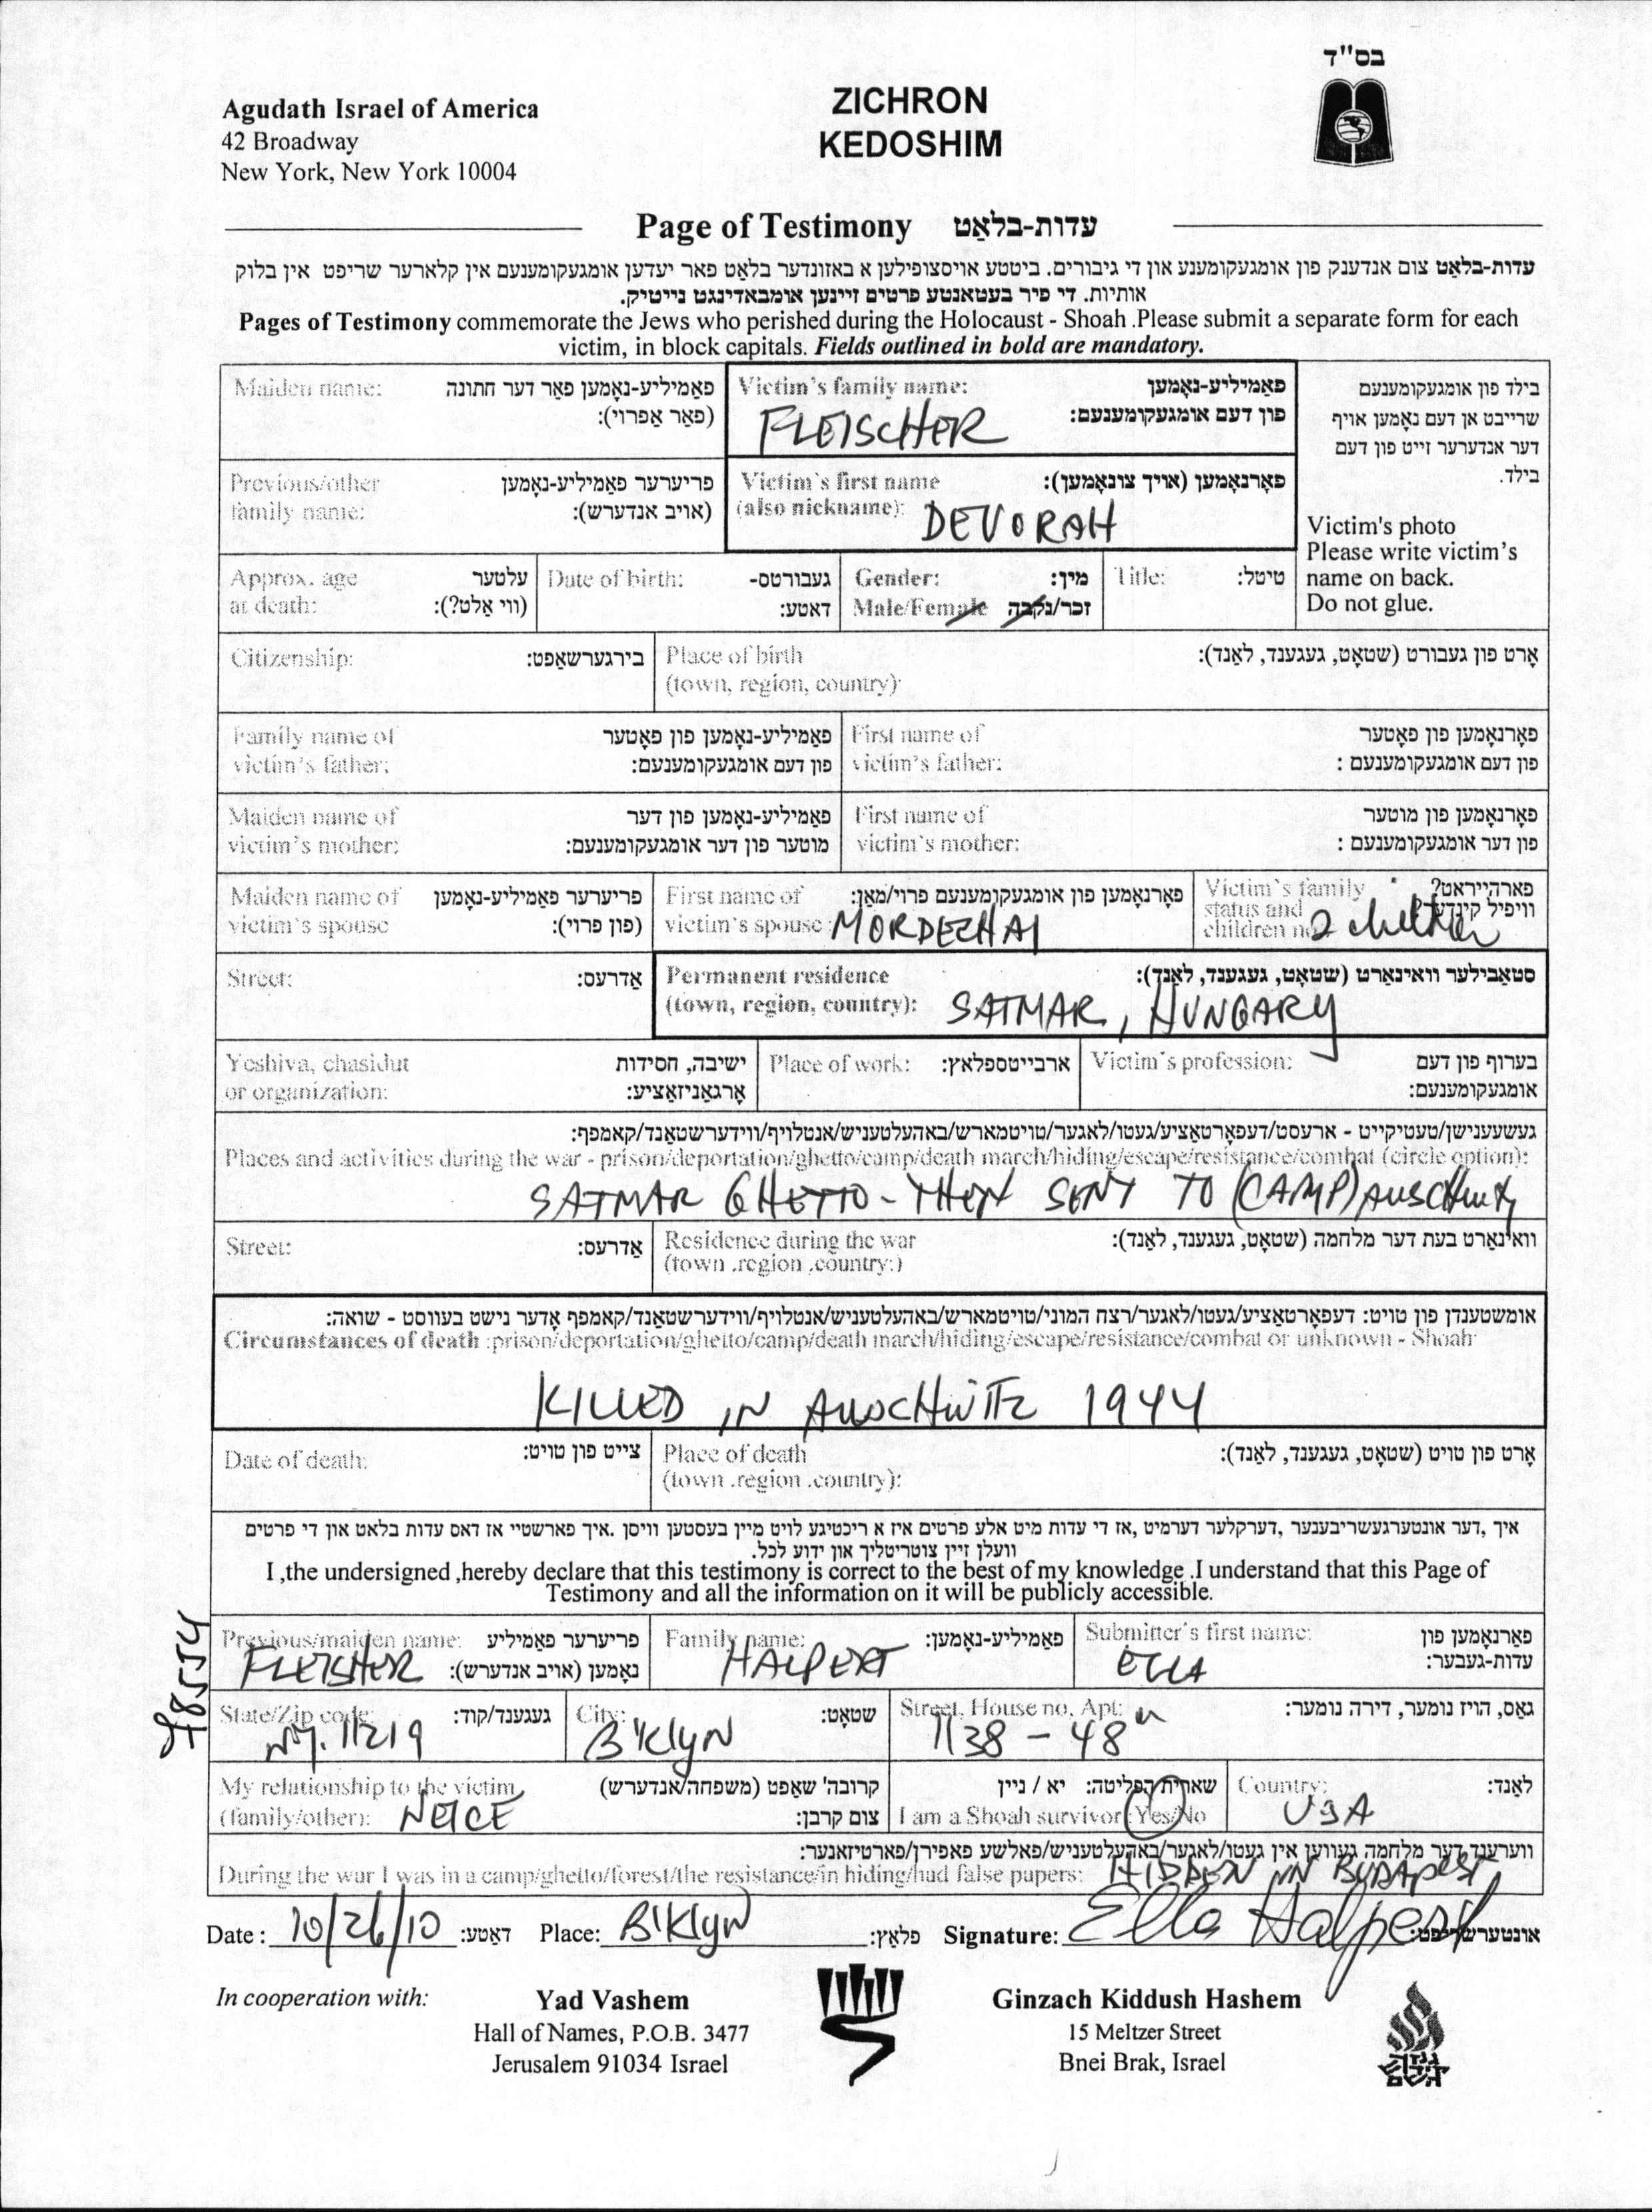 בס"ד
Agudath Israel of America
42 Broadway
New York, New York 10004
ZICHRON
KEDOSHIM
Page of Testimony עדות-בלאַט
עדות-בלאַט צום אנדענק פון אומגעקומענע און די גיבורים. ביטטע אויסצופילען א באזונדער בלאַט פאר יעדען אומגעקומענעם אין קלארער שריפט אין בלוק
אותיות. די פיר בעטאנטע פרטים זיינען אומבאדינגט נייטיק.
Pages of Testimony commemorate the Jews who perished during the Holocaust - Shoah .Please submit a separate form for each
victim, in block capitals. Fields outlined in bold are mandatory.
Maiden name: פאַמיליע-נאָמען פאַר דער חתונה
(פאַר אַפרוי):
Victim's family name: פאַמיליע-נאָמען
פון דעם אומגעקומענעם:
FLEISCHER
Previous/other פריערער פאַמיליע-נאָמען
family name: (אויב אנדערש):
Victim's first name פאָרנאָמען (אויך צונאָמען):
(also nickname): DEVORAH
בילד פון אומגעקומענעם
שרייבט אן דעם נאָמען אויף
דער אנדערער זייט פון דעם
בילד.
Victim's photo
Please write victim's
name on back.
Do not glue.
Approx. age עלטער
at death: (ווי אַלט?):
Date of birth: געבורטס-
דאטע:
Gender: מין:
Male/Female זכר/נקבה
Title: טיטל:
Citizenship: בירגערשאַפט:
Place of birth אָרט פון געבורט (שטאָט, געגענד, לאַנד):
(town, region, country):
Family name of פאַמיליע-נאָמען פון פאָטער
victim's father: פון דעם אומגעקומענעם:
First name of פאָרנאָמען פון פאָטער
victim's father: פון דעם אומגעקומענעם :
Maiden name of פאַמיליע-נאָמען פון דער
victim's mother: מוטער פון דער אומגעקומענעם:
First name of פאָרנאָמען פון מוטער
victim's mother: פון דער אומגעקומענעם :
Maiden name of פריערער פאַמיליע-נאָמען
victim's spouse (פון פרוי):
First name of פאָרנאָמען פון אומגעקומענעם פרוי/מאַן:
victim's spouse: MORDECHAI
Victim's family פארהייראט?
status and וויפיל קינדער?
children no. 2 children
Street: אַדרעס:
Permanent residence סטאַבילער וואוינאָרט (שטאָט, געגענד, לאַנד):
(town, region, country): SATMAR, HUNGARY
Yeshiva, chasidut ישיבה, חסידות
or organization: אָרגאַניזאַציע:
Place of work: ארבייטספלאץ:
Victim's profession: בערוף פון דעם
אומגעקומענעם:
געשעענישן/טעטיקייט - ארעסט/דעפאָרטאַציע/געטו/לאגער/טויטמארש/באהעלטעניש/אנטלויף/ווידערשטאַנד/קאמפף:
Places and activities during the war - prison/deportation/ghetto/camp/death march/hiding/escape/resistance/combat (circle option):
SATMAR GHETTO - THEN SENT TO (CAMP) AUSCHWITZ
Street: אַדרעס:
Residence during the war וואוינאָרט בעת דער מלחמה (שטאָט, געגענד, לאַנד):
(town .region ,country:)
אומשטענדן פון טויט: דעפאָרטאַציע/געטו/לאגער/רצח המוני/טויטמארש/באהעלטעניש/אנטלויף/ווידערשטאַנד/קאמפף אָדער נישט בעוואוסט - שואה:
Circumstances of death :prison/deportation/ghetto/camp/death march/hiding/escape/resistance/combat or unknown - Shoah
KILLED IN AUSCHWITZ 1944
Date of death: צייט פון טויט:
Place of death אָרט פון טויט (שטאָט, געגענד, לאַנד):
(town .region .country):
איך ,דער אונטערגעשריבענער ,דערקלער דערמיט ,אז די עדות מיט אלע פרטים איז א ריכטיגע לויט מיין בעסטען וויסן .איך פארשטיי אז דאס עדות בלאט און די פרטים
וועלן זיין צוטריטליך און ידוע לכל.
I ,the undersigned ,hereby declare that this testimony is correct to the best of my knowledge .I understand that this Page of
Testimony and all the information on it will be publicly accessible.
Previous/maiden name: פריערער פאַמיליע
FLEISHER נאָמען (אויב אנדערש):
Family name: פאַמיליע-נאָמען:
HALPERT
Submitter's first name: פאַרנאָמען פון
עדות-געבער:
ELLA
State/Zip code: געגענד/קוד:
NY. 11219
City: שטאָט:
B'KLYN
Street, House no, Apt: גאַס, הויז נומער, דירה נומער:
1138 - 48
My relationship to the victim קרובה' שאַפט (משפחה/אנדערש)
(family/other): NEICE צום קרבן:
שארית הפליטה: יא / ניין
I am a Shoah survivor: Yes/No
Country: לאַנד:
USA
ווערענד דער מלחמה געווען אין געטו/לאגער/באהעלטעניש/פאלשע פאפירן/פארטיזאנער:
During the war I was in a camp/ghetto/forest/the resistance/in hiding/had false papers: HIDDEN IN BUDAPEST
Date : 10/26/10 דאטע: Place: B'KLYN פלאַץ: Signature: Ella Halpert אונטערשריפט:
In cooperation with:
Yad Vashem
Hall of Names, P.O.B. 3477
Jerusalem 91034 Israel
Ginzach Kiddush Hashem
15 Meltzer Street
Bnei Brak, Israel
גנזך
קידוש
השם